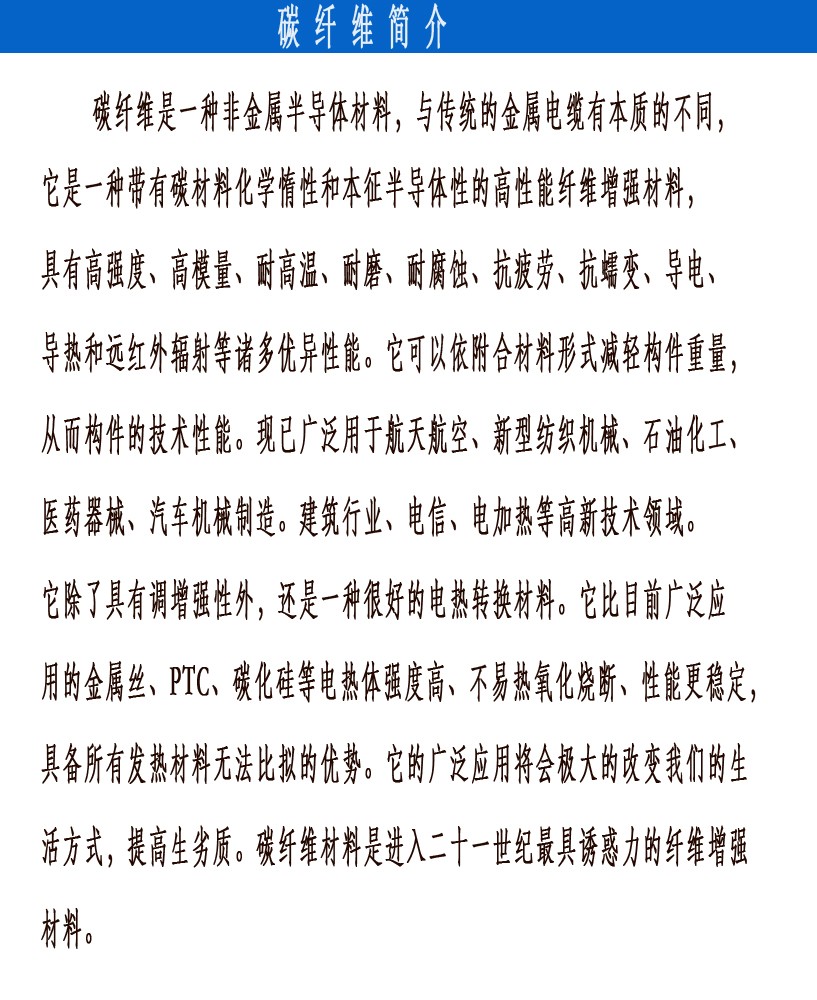 碳纤维简介
碳纤维是一种非金属半导体材料，与传统的金属电缆有本质的不同，
它是一种带有碳材料化学惰性和本征半导体性的高性能纤维增强材料，
具有高强度、高模量、耐高温、耐磨、耐腐蚀、抗疲劳、抗蠕变、导电、
导热和远红外辐射等诸多优异性能。它可以依附合材料形式减轻构件重量，
从而构件的技术性能。现已广泛用于航天航空、新型纺织机械、石油化工、
医药器械、汽车机械制造。建筑行业、电信、电加热等高新技术领域。
它除了具有调增强性外，还是一种很好的电热转换材料。它比目前广泛应
用的金属丝、PTC、碳化硅等电热体强度高、不易热氧化烧断、性能更稳定，
具备所有发热材料无法比拟的优势。它的广泛应用将会极大的改变我们的生
活方式，提高生劣质。碳纤维材料是进入二十一世纪最具诱惑力的纤维增强
材料。